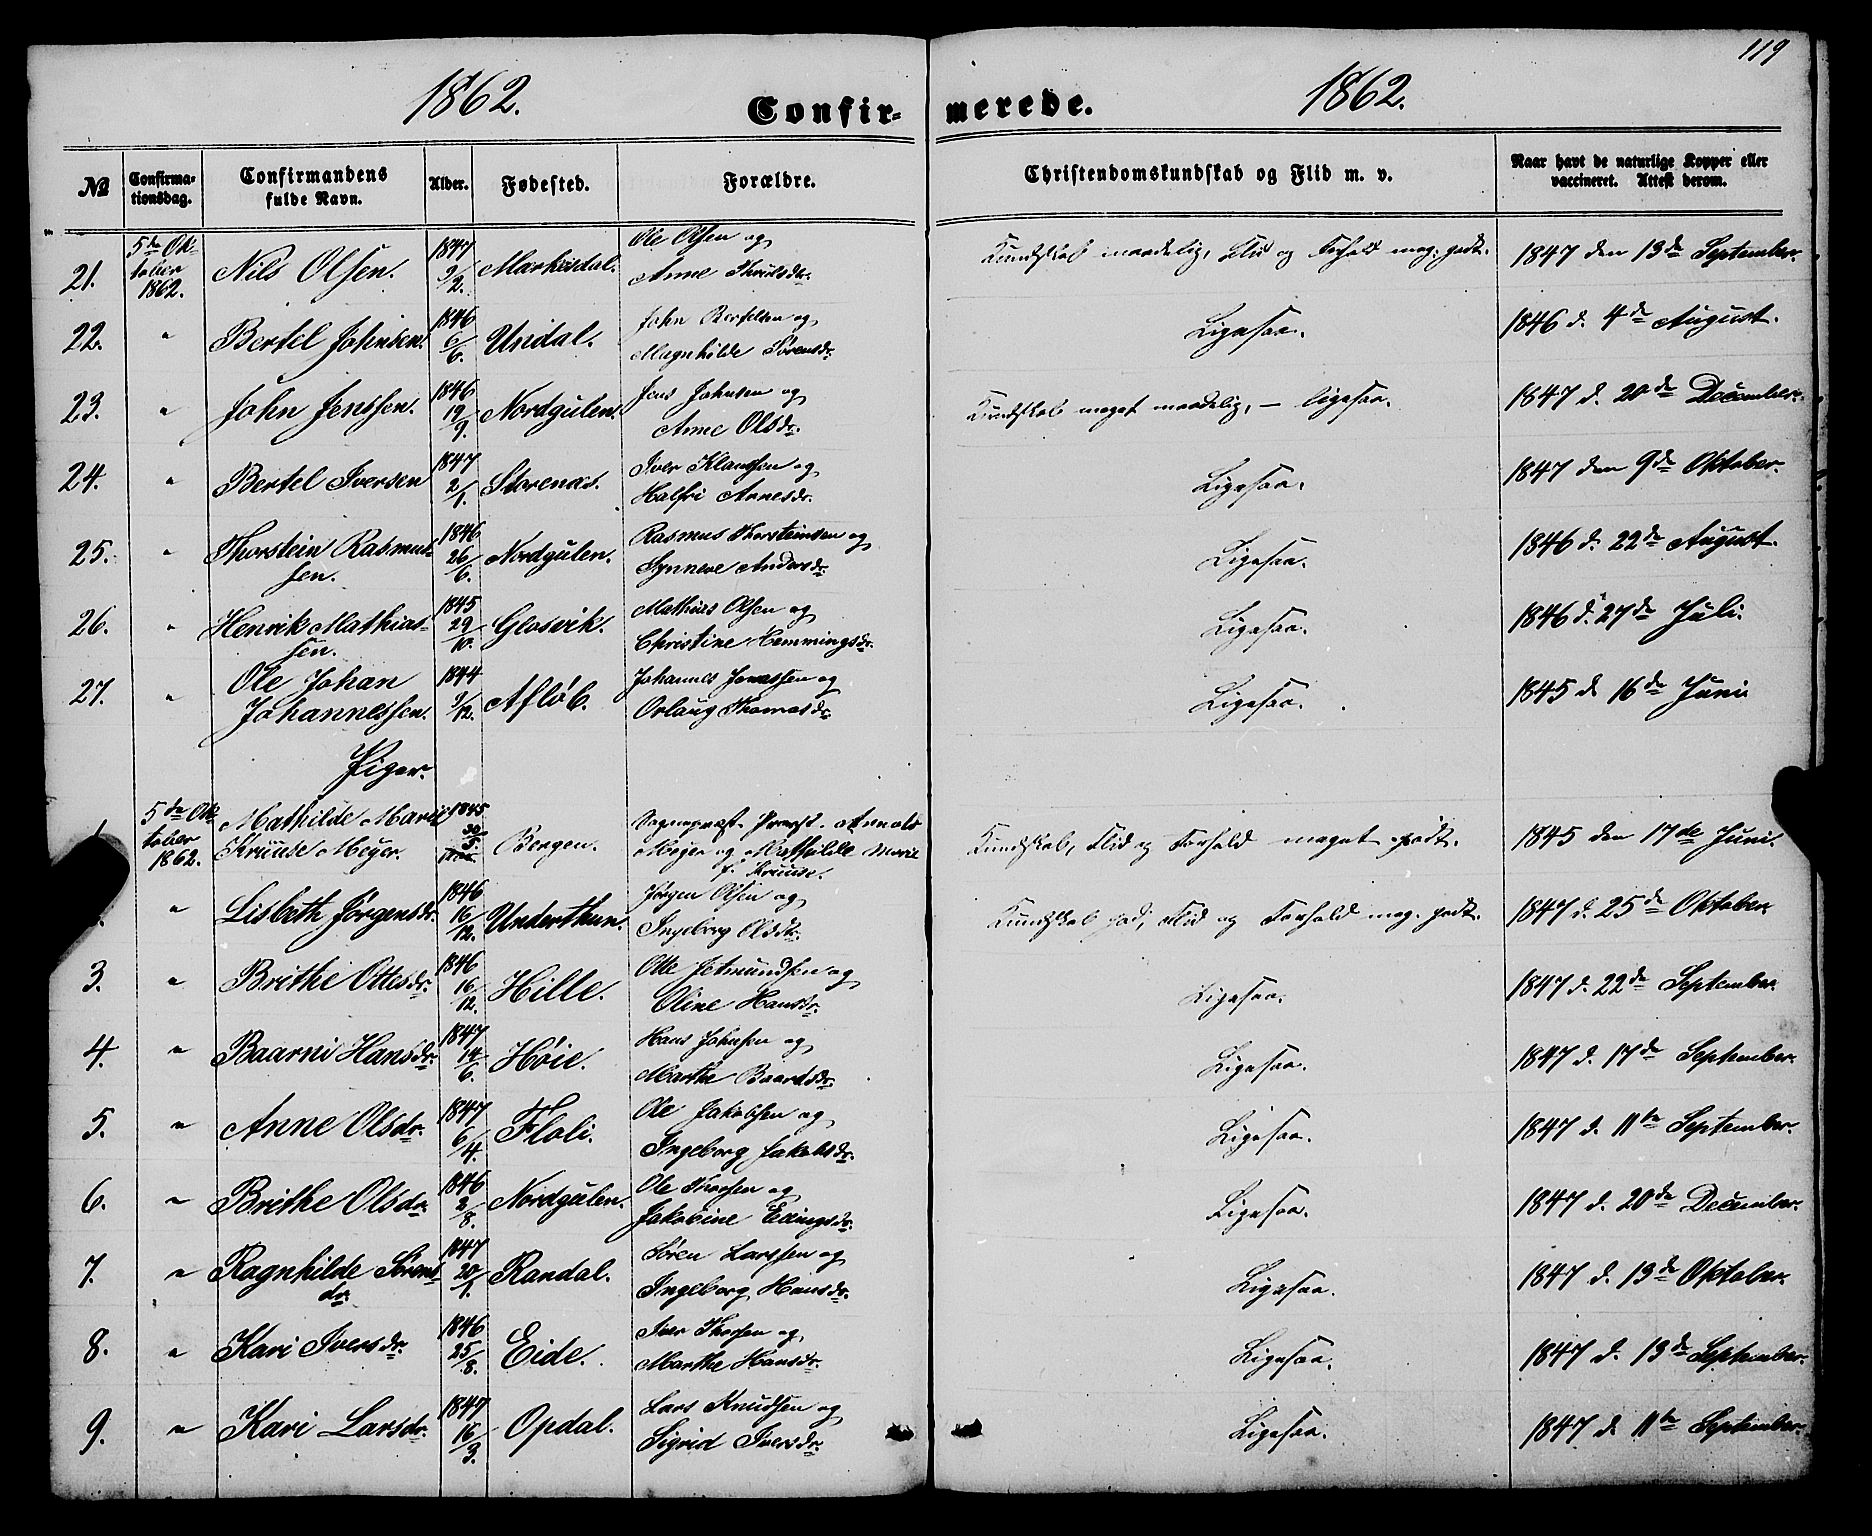 119
1862. Confir- merede. 1862.
№ Confirma-tionsdag. Confirmandens fulde Navn. Alder. Fødested. Forældre. Christendomskundskab og Flid m. v. Naar havt de naturlige Kopper eller vaccineret. Attest derom.
21. 5te Oktober 1862. Nils Olsen. 1847 9/2. Markusdal. Ole Olsen og Anne Thrulsdr. Kundskab maadelig, Flid og Forhold meg. godt. 1847 den 13de September.
22. " Bertel Johnsen. 1846 6/6. Undal. John Bertelsen og Magnhilde Sørensdr. Ligesaa. 1846 d. 4de August.
23. " John Jenssen. 1846 19/9. Nordgulen. Jens Johnsen og Anne Olsdr. Kundskab meget maadelig, — ligesaa. 1847 d. 20de December.
24. " Bertel Iversen 1847 2/1. Storenæs. Iver Klaussen og Halfri Arnesdr. Ligesaa. 1847 den 9de Oktober.
25. " Thorstein Rasmussen. 1846 26/6. Nordgulen. Rasmus Thorsteinsen og Synneve Andersdr. Ligesaa. 1846 d. 22de August.
26. " Henrik Mathiassen. 1845 29/10. Glosvik. Mathias Olsen og Christine Hemmingsdr. Ligesaa. 1846 d. 27de Juli.
27. " Ole Johan Johannessen. 1844 9/12. Afløb. Johannes Jonassen og Orlaug Thomasdr. Ligesaa. 1845 d 16de Juni
Piger.
1. 5te Oktober 1862. Mathilde Marie Kruuse Meyer. 1845 30/5. Bergen. Sognepræst Meyer og Mathilde Marie f. Kruuse. Kundskab, Flid og Forhold meget godt. 1845 den 17de Juni.
" Lisbeth Jørgensdr. 1846 16/12. Underthun. Jørgen Olsen og Ingeborg Olsdr. Kundskab god, Flid og Forhold meg. godt. 1847 d. 25de Oktober
3. " Brithe Ottesdr. 1846 16/12. Hille. Otte Jetmundsen og Oline Hansdr. Ligesaa. 1847 d. 22de September.
4. " Baarni Hansdr. 1847 14/6. Høie. Hans Johnsen og Marthe Baardsdr. Ligesaa. 1847 d. 17de September.
5. " Anne Olsdr. 1847 6/4. Floli. Ole Jakobsen og Ingeborg Jakobsdr. Ligesaa. 1847 d. 11te September.
6. " Brithe Olsdr. 1846 2/8. Nordgulen. Ole Thorsen og Jakobine Ellingsdr. Ligesaa. 1847 d. 20de December.
7. " Ragnhilde Sørensdr. 1847 20/1. Randal. Søren Larssen og Ingeborg Hansdr. Ligesaa. 1847 d. 13de Oktober.
8. " Kari Iversdr. 1846 25/8. Eide. Iver Thorsen og Marthe Hansdr. Ligesaa. 1847 d. 13de September.
9. " Kari Larsdr. 1847 16/3. Opdal. Lars Knudsen og Sigrid Iversdr. Ligesaa. 1847 d 11te September.